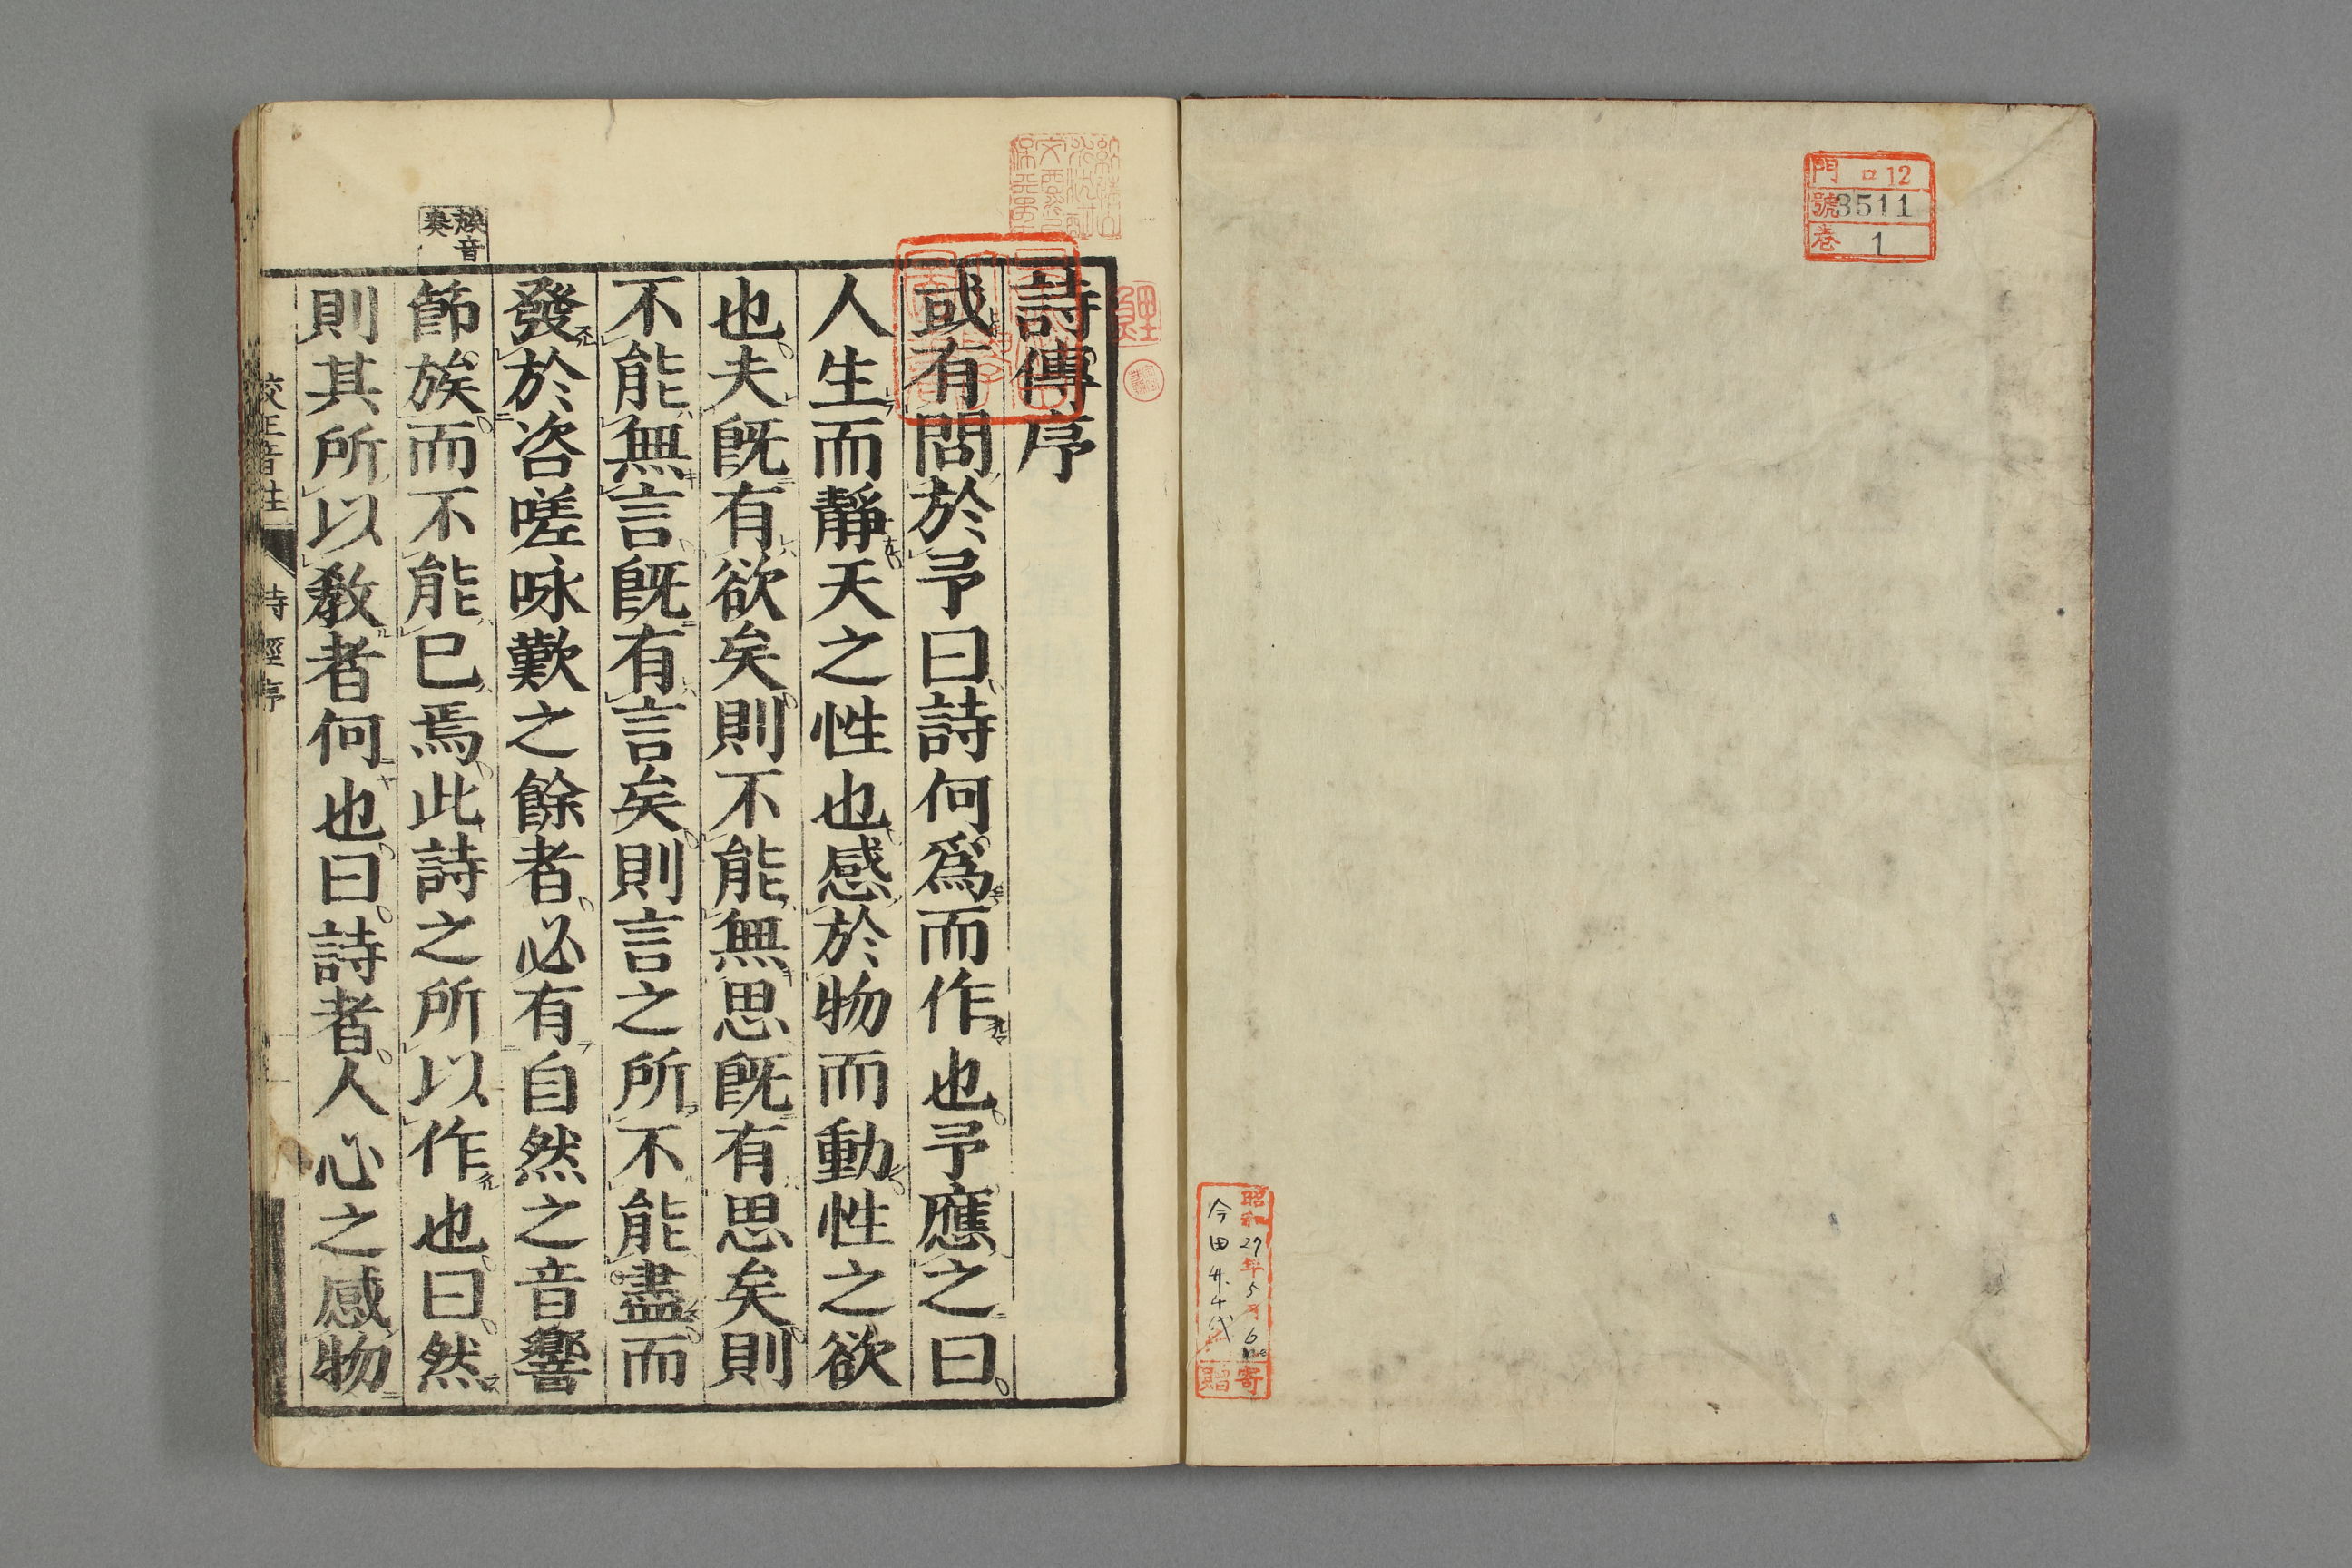 門 ロ12
號 3511
卷 1
昭和27年5月6日
寄贈
詩傳序
或有問於予曰詩何爲而作也予應之曰
人生而靜天之性也感於物而動性之欲
也夫旣有欲矣則不能無思旣有思矣則
不能無言旣有言矣則言之所不能盡而
發於咨嗟咏歎之餘者必有自然之音響
節族而不能已焉此詩之所以作也曰然
則其所以敎者何也曰詩者人心之感物
族音
奏
校正音註 詩經序